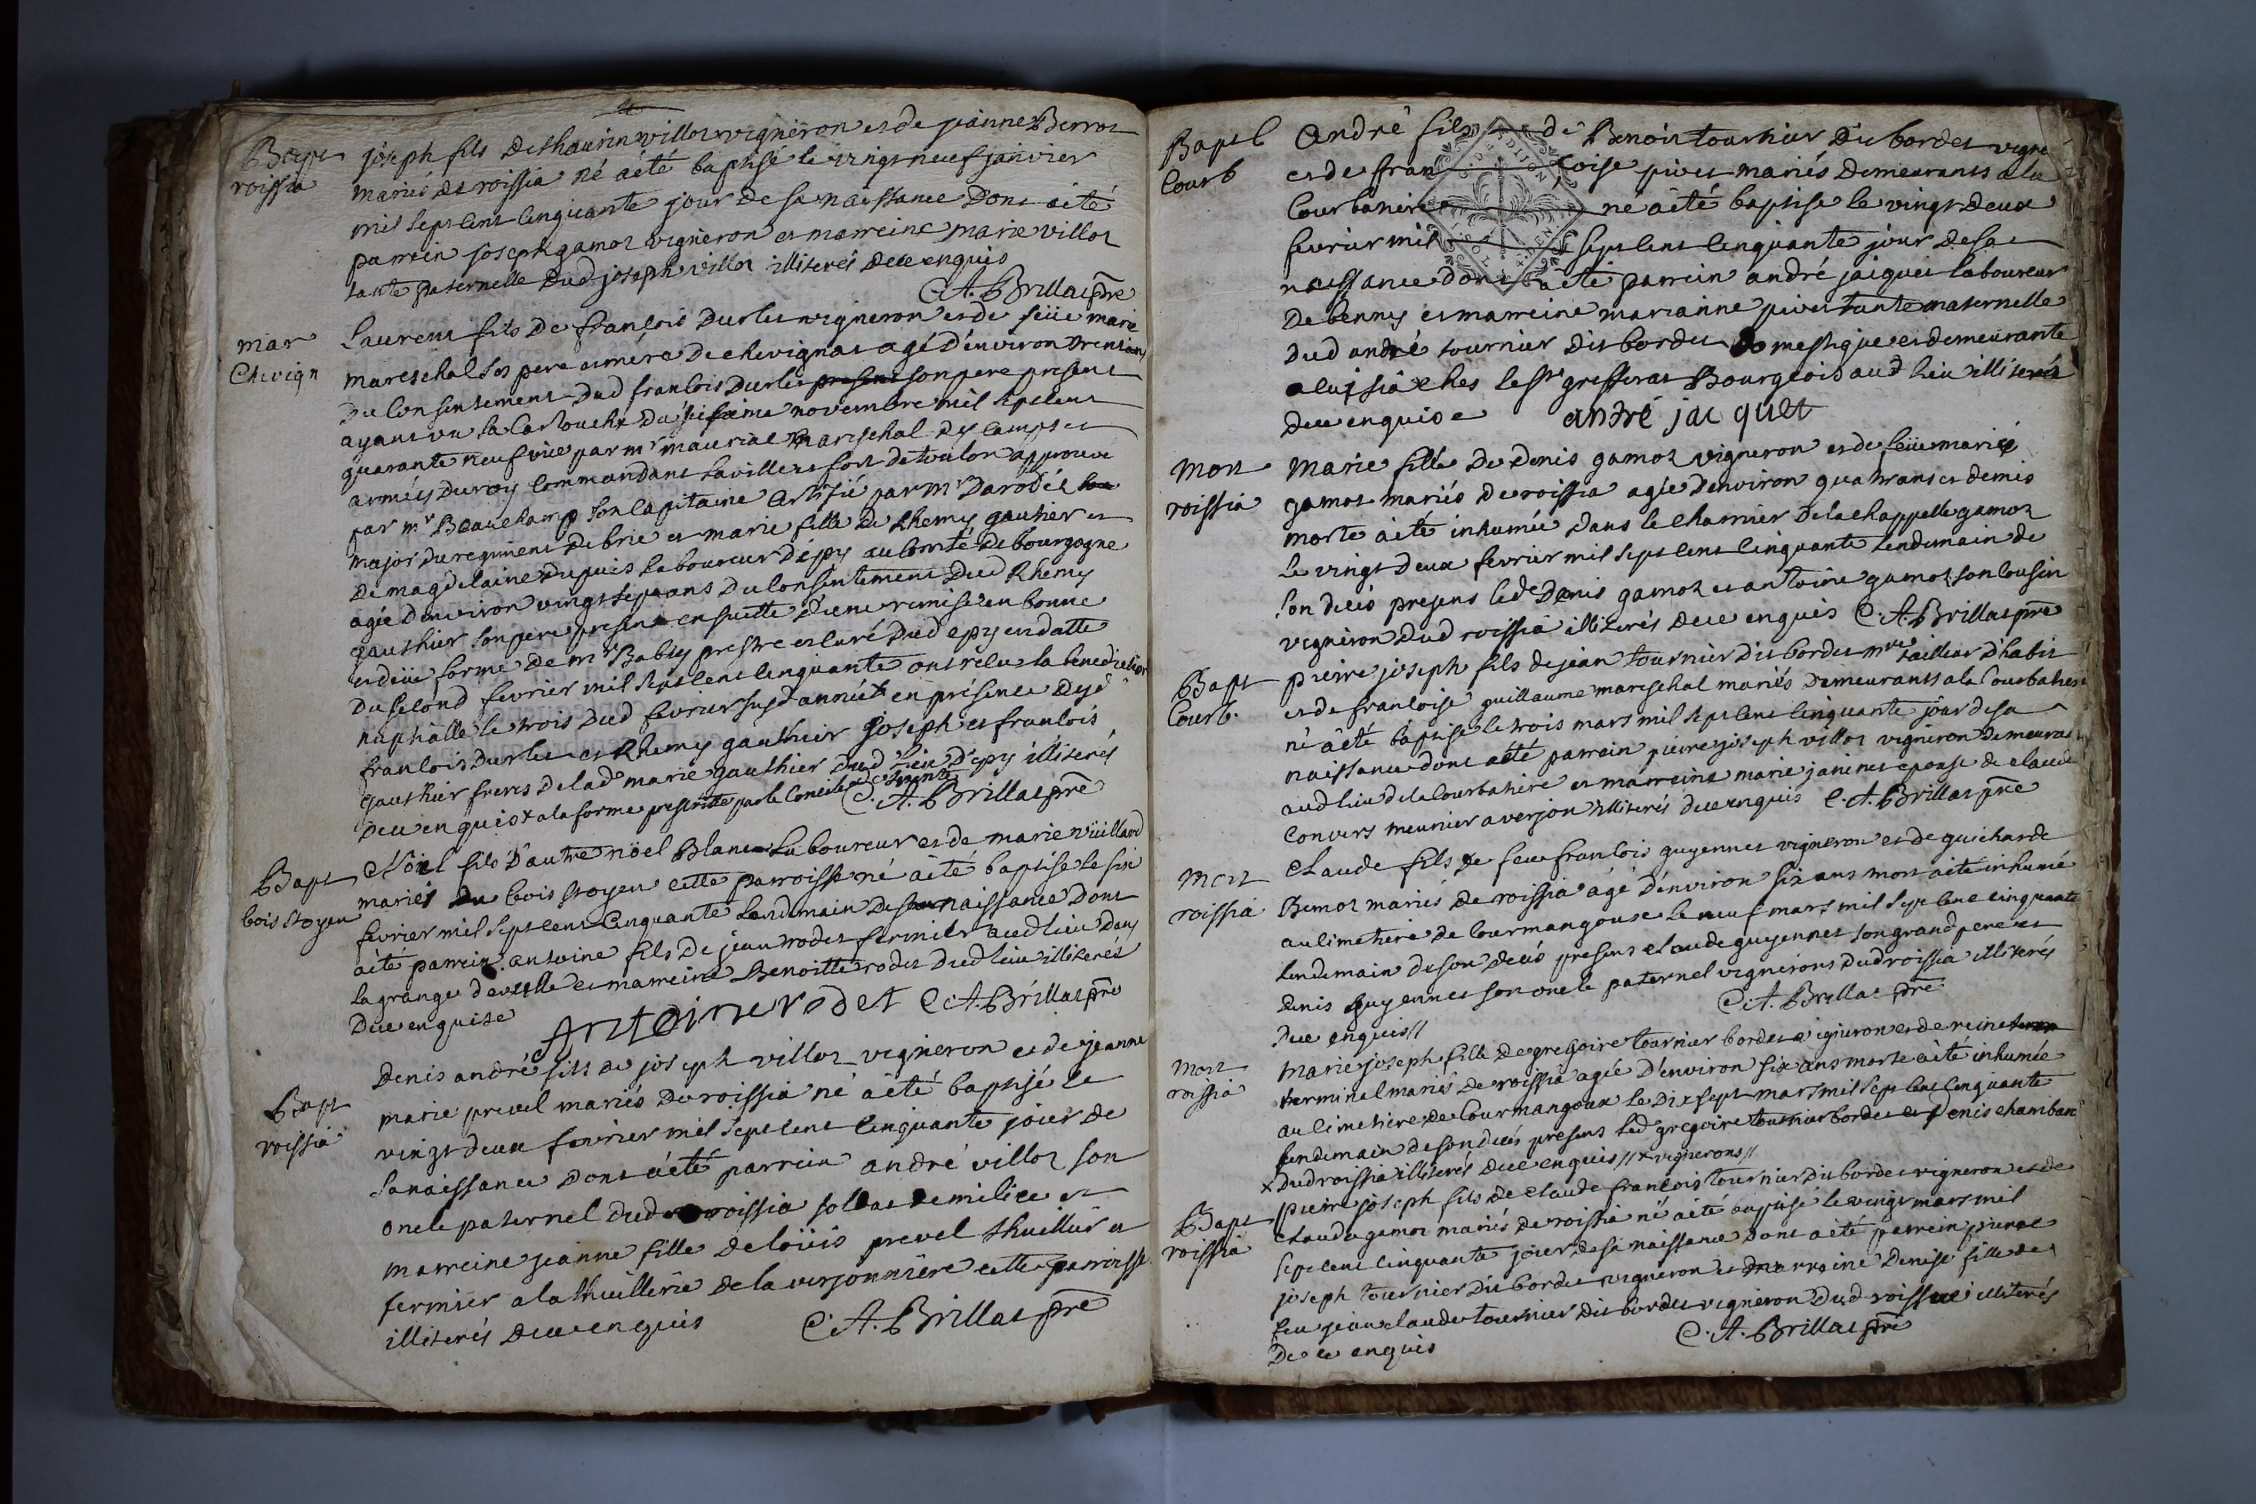 Bapt
roissia
joseph fils de thaurin villot vigneron et de jeanne Berrot
mariés de roissia né a été baptisé le vingt neuf janvier
mil sept cent cinquante jour de sa naissance dont a été
parrein joseph gamot vigneron et marreine marie villot
tante paternelle dud joseph villot illiterés de ce enquis
C.A. Brillat pre
mar
Chevign
Laurent fils de francois durlet vigneron et de feüe marie
mareschal ses pere et mére de chevignat agé d'environ trente ans
du consentement dud francois durlet present son pere present
ayant vu sa cartouche du seisieme novembre mil sept cent
quarante neuf vüe par mr mauriac mareschal des camps et
armées du roy commandant la ville et fort de toulon approuvé
par mr Beauchamp son capitaine certifié par mr Darodes
major du regiment de brie et marie fille de Rhemy gautier et
de magdelaine dupuis laboureur d'épy au comté de bourgogne
agée d'environ vingt sept ans du consentement dud Rhemy
gauthier son pere present ensuitte d'une remise en bonne
et düe forme de mr Babey prestre et curé dud epy en datte
du second fevrier mil sept cent cinquante ont recu la benediction
nuptialle le trois dud fevrier susd année x en présence desd
francois durlet et Rhemy gauthier joseph et francois
gauthier freres de lad marie gauthier dud lieu d'epy illiterés
de ce enquis x a la forme prescritte par le concile de trente
C.A. Brillat pre
Bapt
bois stoyen
Nöel fils d'autre nöel Blanc laboureur et de marie vüillard
mariés du bois stoyen cette parroisse né a été baptisé le six
fevrier mil sept cent cinquante lendemain de sa naissance dont
a été parrein antoine fils de jean rodet fermier aud lieu dans
la grange de et marreine Benoitte rodet dud lieu illiterés
de ce enquise
Antoine rodet C.A. Brillat pre
Bapt
roissia
Denis andré fils de joseph villot vigneron et de jeanne
marie prevel mariés de roissia né a été baptisé le
vingt deux fevrier mil sept cent cinquante jour de
sa naissance dont a été parrein andré villot son
oncle paternel dud roissia soldat de milice et
marreine jeanne fille de loüis prevel thuillier et
fermier a la thuillerie de la verjonniére cette parroisse
illiterés de ce enquis C.A. Brillat pre
Bapt
Courb
André fils de Benoit tournier dis bordet vigne
et de francoise pivet mariés demeurants a la
Courbatiere né a été baptisé le vingt deux
fevrier mil sept cent cinquante jour de sa
naissance dont a été parrein andré jacquet laboureur
de benny et marreine marianne pivet tante maternelle
dud andré tournier dis bordet domestique et demeurante
a luisia ches le sr grefferat Bourgeois aud lieu illiterés
de ce enquise andré jac quet
G. DE DIJON
Mort
roissia
Marie fille de denis gamot vigneron et de feüe marie
gamot mariés de roissia agée d'environ quatre ans et demis
morte a été inhumée dans le charnier de la chappelle gamot
le vingt deux fevrier mil sept cent cinquante lendemain de
son decés present led denis gamot et antoine gamot son cousin
vigneron dud roissia illiterés de ce enquis C.A. Brillat pre
Bapt
Courb.
pierre joseph fils de jean tournier dis bordet mre tailleur d'habit
et de francoise guillaume mareschal mariés demeurants a la Courbatiere
né a été baptisé le trois mars mil sept cent cinquante jour de sa
naissance dont a été parrein pierre joseph villot vigneron demeurant
aud lieu de la Courbatiére et marreine marie janenet epouse de claude
convers meunier a verjon illiterés de ce enquis C.A. Brillat pre
Mort
roissia
claude fils de feu francois guyennet vigneron et de guicharde
Bemot mariés de roissia agé d'environ six ans mort a été inhumé
au cimetiére de courmangoux le neuf mars mil sept cent cinquante
lendemain de son decés present claude guyennet son grand pere et
denis guyennet son oncle paternel vignerons dud roissia illiterés
de ce enquis//
C.A. Brillat pre
Mort
roissia
Marie joseph fille de gregoire tournier bordet vigneron et de reine
terminel mariés de roissia agée d'environ six ans morte a été inhumée
au cimetiére de Courmangoux le dix sept mars mil sept cent cinquante
lendemain de son decés present led gregoire tournier bordet et denis chamban
x dud roissia illiterés de ce enquis // x vignerons//
Bapt
roissia
pierre joseph fils de claude francois tournier dis bordet vigneron et de
claudu gamot mariés de roissia né a été baptisé le vingt mars mil
sept cent cinquante jour de sa naissance dont a été parrein pierre
joseph tournier dis bordet vigneron et marreine denise fille de
feu jean claude tournier dis bordet vigneron dud roissia illiterés
de ce enquis
C.A. Brillat pre